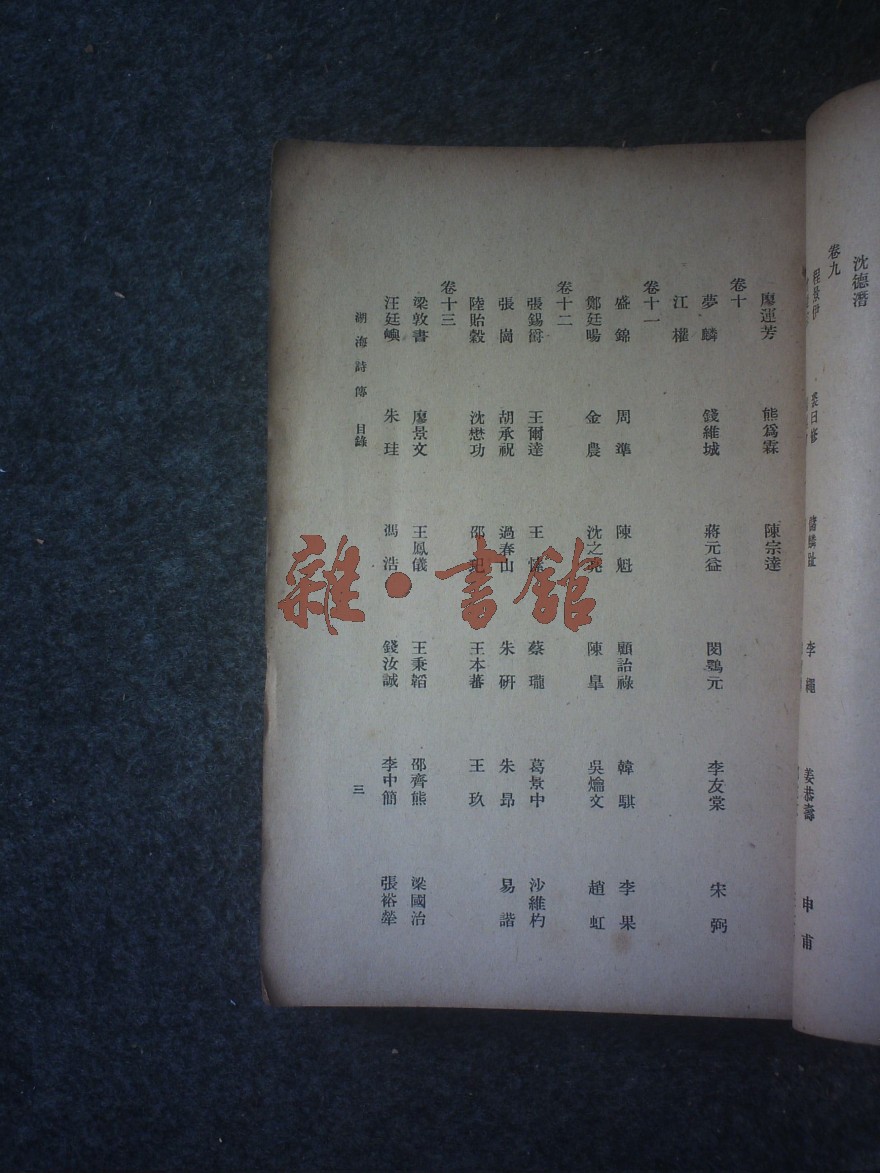 沈德潛
卷九
李繩 姜恭壽 申甫
廖運芳 熊爲霖 陳宗達
卷十
夢麟 錢維城 蔣元益 閔鶚元 李友棠 宋弼
江權
卷十一
盛錦 周準 陳魁 顧詒祿 韓騏 李果
鄭廷暘 金農 沈之 陳皐 吳爚文 趙虹
卷十二
張錫爵 王爾達 王愫 蔡瓏 葛景中 沙維杓
張崗 胡承祝 過春山 朱硏 朱昂 易諧
陸貽穀 沈懋功 邵玘 王本蕃 王玖
卷十三
梁敦書 廖景文 王鳳儀 王秉韜 邵齊熊 梁國治
汪廷嶼 朱珪 馮浩 錢汝誠 李中簡 張裕犖
湖海詩傳 目錄 三
雜·書館